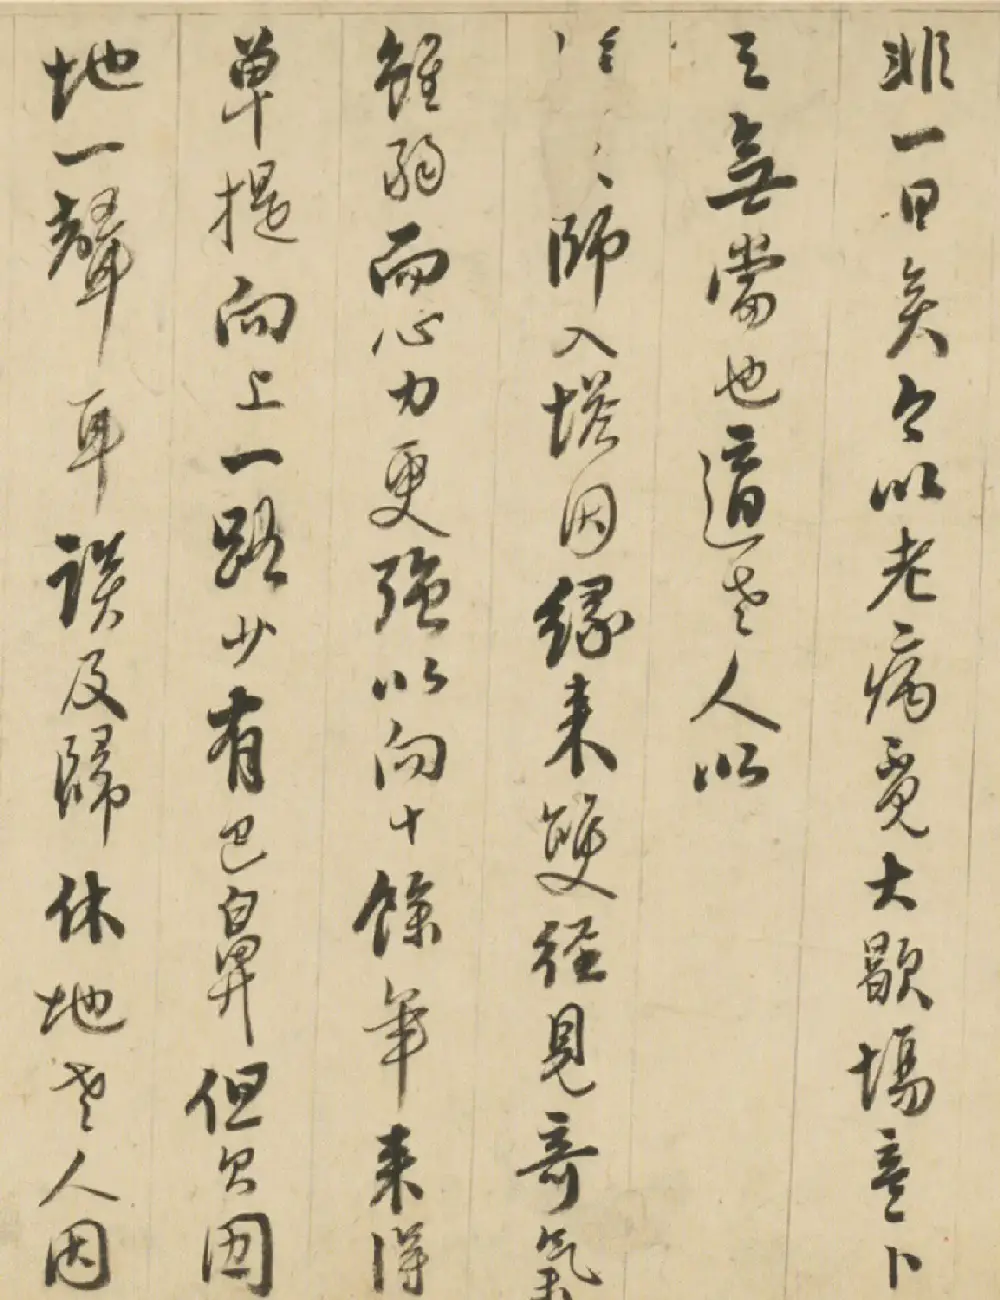 非一日矣今以老病覓大歇場意卜
之無當也道老人以
師入塔因緣来雙径見奇氣
雖弱而心力更強以向十餘年来得
單提向上一路少有巴鼻但欠因
地一聲耳談及歸休地老人因